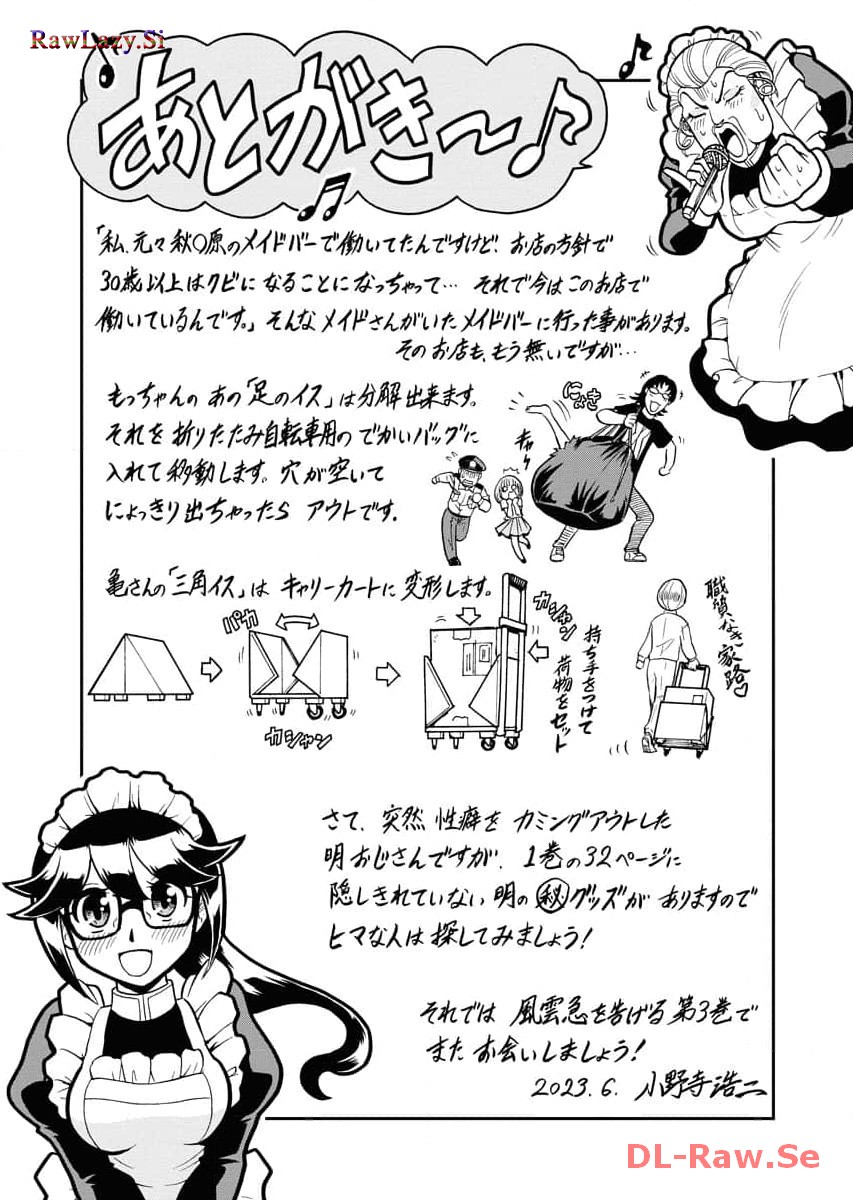 RawLazy.Si
あとがき〜♪
「私、元々秋〇原のメイドバーで働いてたんですけど、お店の方針で
30歳以上はクビになることになっちゃって… それで今はこのお店で
働いているんです。」そんなメイドさんがいたメイドバーに行った事があります。
そのお店も、もう無いですが…
もっちゃんのあの「足のイス」は分解出来ます。
それを折りたたみ自転車用のでかいバッグに
入れて移動します。穴が空いて
にょっきり出ちゃったら アウトです.
にょき
キャー
亀さんの「三角イス」は キャリーカートに変形します。
パカ
カシャン
カシャン
持ち手をつけて
荷物をセット
職質なき家路♡
さて、突然性癖をカミングアウトした
明おじさんですが、1巻の32ページに
隠しきれていない明の㊙グッズがありますので
ヒマな人は探してみましょう!
それでは 風雲急を告げる第3巻で
またお会いしましょう!
2023.6. 小野寺浩二
DL-Raw.Se